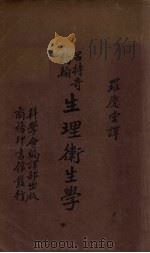 羅慶堂譯
呂特奇
生理衛生學
科學會編譯部出版
商務印書館發行